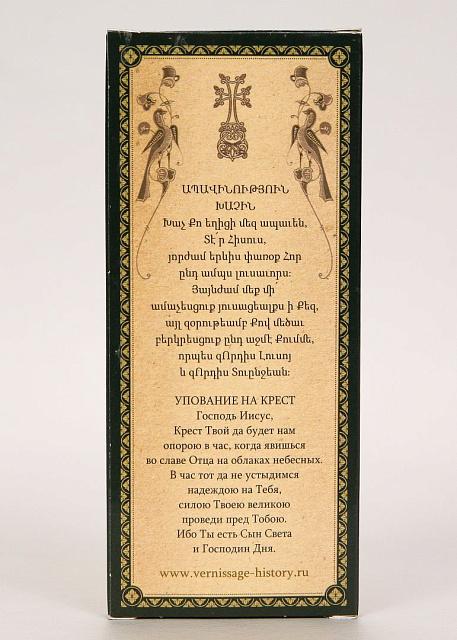 ԱՊԱՎԻՆՈՒԹՅՈՒՆ
ԽԱՉԻՆ
Խաչ Քո եղիցի մեզ ապաւեն,
Տէ՛ր Հիսուս,
յորժամ երևիս փառօք Հոր
ընդ ամպս լուսաւորս։
Յայնժամ մեք մի
ամաչեսցուք յուսացեալքս ի Քեզ,
այլ զօրութեամբ Քով մեծաւ
բերկրեսցուք ընդ աջմէ Քումմե,
որպես զՈրդիս Լուսոյ
և զՈրդիս Տուընջեան։
УПОВАНИЕ НА КРЕСТ
Господь Иисус,
Крест Твой да будет нам
опорою в час, когда явишься
во славе Отца на облаках небесных.
В час тот да не устыдимся
надеждою на Тебя,
силою Твоею великою
проведи пред Тобою.
Ибо Ты есть Сын Света
и Господин Дня.
www.vernissage-history.ru